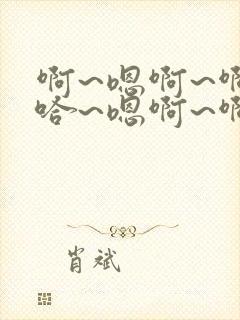 啊~嗯啊~啊
哈~嗯啊~啊
肖斌